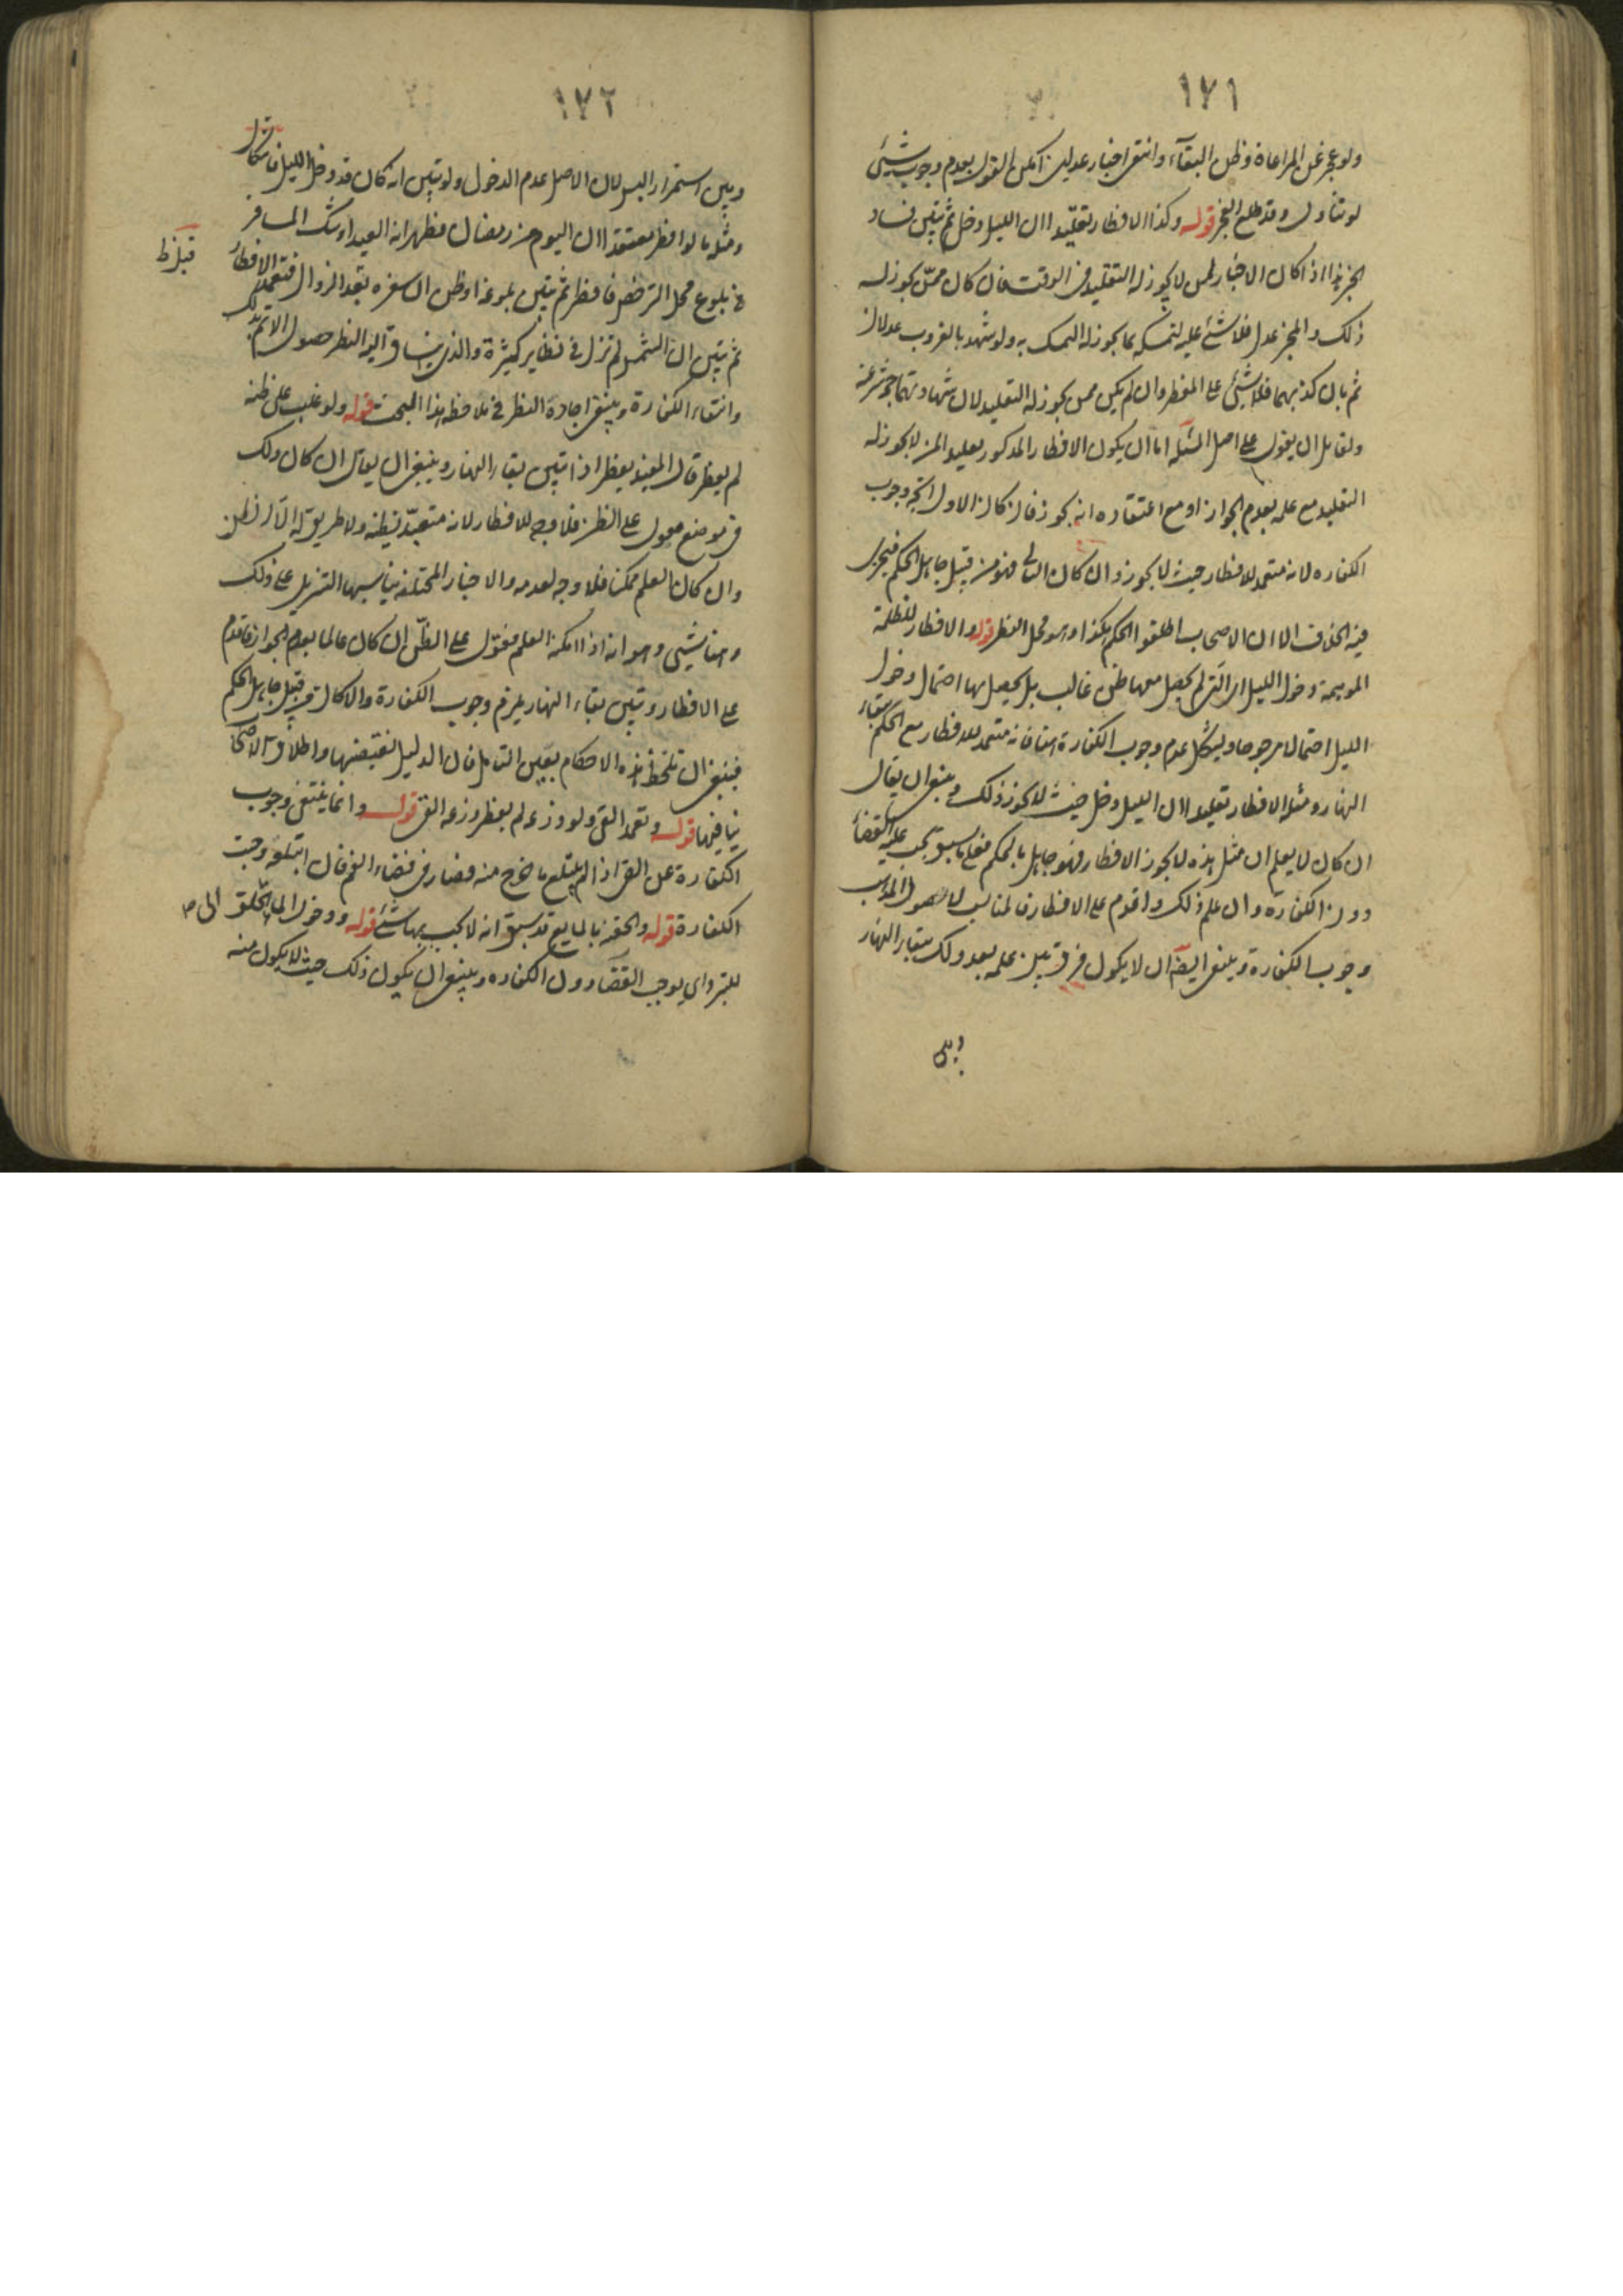 ١٧١
ولو عجز عن المراعاة وظن البقاء وانتفى اخبار عدلين امكن القول بعدم وجوب شئ
لو تناول وقد طلع الفجر قوله وكذا الافطار تقليدا ان الليل دخل ثم تبين فساد
الخبر هذا اذا كان الاخبار لمن لا يجوز له التقليد في الوقت فان كان ممن يجوز له
ذلك والمخبر عدل فلا شئ عليه لتمسكه بما يجوز له التمسك به ولو شهد بالغروب عدلان
ثم بان كذبهما فلا شئ على المفطر وان لم يكن ممن يجوز له التقليد لان شهادتهما حجة شرعية
ولقائل ان يقول على اصل المسئلة اما ان يكون الافطار المذكور تقليدا لمن لا يجوز له
التقليد مع علمه بعدم الجواز او مع اعتقاده انه يجوز فان كان الاول اتجه وجوب
الكفاره لانه متعمد للافطار حيث لا يجوز وان كان الثانى فهو من قبيل جاهل الحكم فيجرى
فيه الخلاف الا ان الاصحاب اطلقوا الحكم هكذا وهو محل النظر قوله والافطار للظلمة
الموهمة دخول الليل اى التى لم يحصل معها ظن غالب بل يحصل بها احتمال دخول
الليل احتمالا مرجوحا ويشكل عدم وجوب الكفارة هنا فانه متعمد للافطار مع الحكم ببقاء
النهار ومثله الافطار تقليدا ان الليل دخل حيث لا يجوز ذلك وينبغى ان يقال
ان كان لا يعلم ان مثل هذه لا يجوز الافطار فهو جاهل بالحكم فعلى ما سبق يجب عليه القضاء
دون الكفارة وان علم ذلك واقدم على الافطار فالمناسب لاصول المذهب
وجوب الكفارة وينبغى ايضا ان لا يكون فرق بين علمه بعد ذلك ببقاء النهار
وبين
١٧٢
وبين استمرار اللبس لان الاصل عدم الدخول ولو تبين انه كان قد دخل الليل فاشكال
ومثله ما لو افطر معتقدا ان اليوم من رمضان فظهر انه العيد او شك المسافر
فى بلوغ محل الترخص فافطر ثم تبين بلوغه او ظن ان سفره بعد الزوال فتعمد الافطار
قبل ظ
ثم تبين ان الشمس لم تزل فى نظاير كثيرة والذى ينساق اليه النظر حصول الاثم بذلك
وانتفاء الكفارة وينبغى اجادة النظر فى ملاحظة هذا المبحث قوله ولو غلب على ظنه
لم يفطر قال المفيد يفطر اذا تبين بقاء النهار وينبغى ان يقال ان كان ذلك
فى موضع معول على الظن فلا وجه للافطار لانه متعبد بظنه ولا طريق له الا الظن
وان كان العلم ممكنا فلا وجه لعدمه والاخبار المختلفة يناسبها التنزيل على ذلك
وهنا شئ وهو انه اذا امكنه العلم فعول على الظن ان كان عالما بعدم الجواز فاقدم
على الافطار وتبين بقاء النهار يلزم وجوب الكفارة والا كان من قبيل جاهل الحكم
فينبغى ان تلحظ هذه الاحكام بعين التامل فان الدليل يقتضيها واطلاق الاصحاب
ينافيها قوله وتعمد القئ ولو ذرعه لم يفطر ذرعه القئ قوله وانما ينتفى وجوب
الكفارة عن القئ اذا لم يبتلع ما خرج منه فصار فى فضاء الفم فان ابتلعه وجبت
الكفارة قوله والحقنة بالمايع قد سبق انه لا يجب بها شئ قوله ودخول الماء الحلق الى
للتبرد اى يوجب القضاء دون الكفاره وينبغى ان يكون ذلك حيث لا يكون منه